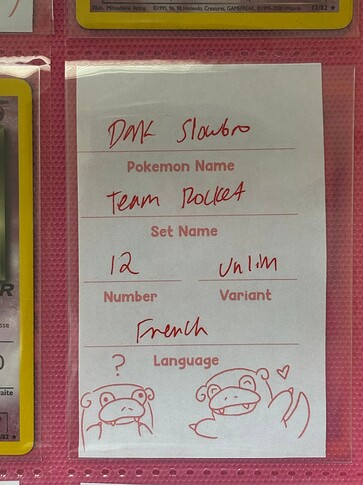 Illus. Mitsuhiro Arita ©1995, 96, 98 Nintendo, Creatures, GAMEFREAK. ©1999-2000 Wizards. 12/82 ★
Dark Slowbro
Pokemon Name
Team Rocket
Set Name
12 Unlim
Number Variant
French
Language
?